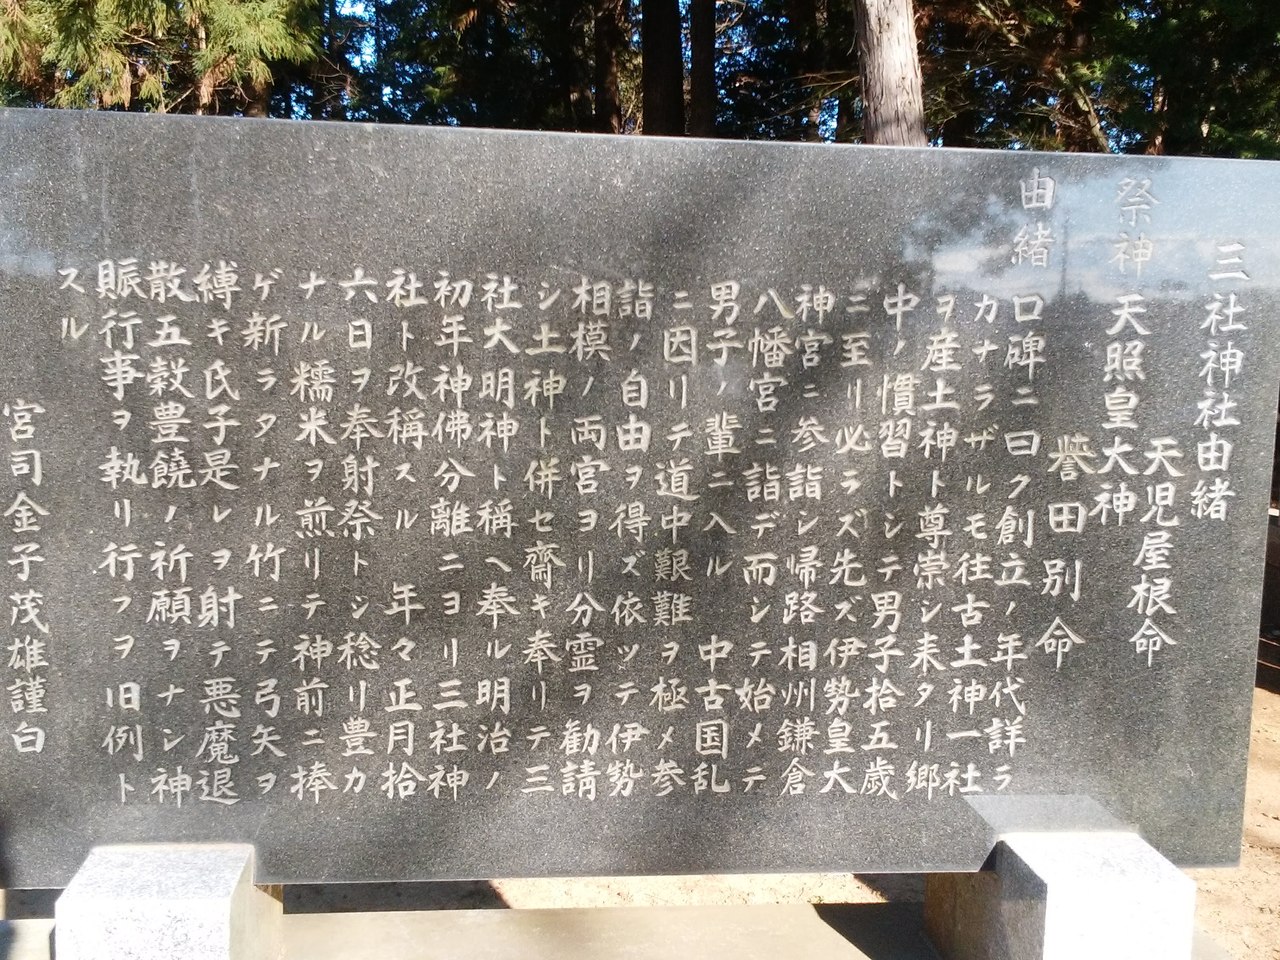 三社神社由緒
天児屋根命
祭神 天照皇大神
誉田別命
由緒 口碑ニ曰ク創立ノ年代詳ラ
カナラザルモ往古土神一社
ヲ産土神ト尊崇シ来タリ郷
中ノ慣習トシテ男子拾五歳
ニ至リ必ラズ先ズ伊勢皇大
神宮ニ参詣シ帰路相州鎌倉
八幡宮ニ詣デ而シテ始メテ
男子ノ輩ニ入ル 中古国乱
ニ因リテ道中艱難ヲ極メ参
詣ノ自由ヲ得ズ依ッテ伊勢
相模ノ両宮ヨリ分霊ヲ勧請
シ土神ト併セ齋キ奉リテ三
社大明神ト稱ヘ奉ル明治ノ
初年神佛分離ニヨリ三社神
社ト改稱スル 年々正月拾
六日ヲ奉射祭トシ稔リ豊カ
ナル糯米ヲ煎リテ神前ニ捧
ゲ新ラタナル竹ニテ弓矢ヲ
縛キ氏子是レヲ射テ悪魔退
散五穀豊饒ノ祈願ヲナシ神
賑行事ヲ執リ行フヲ旧例ト
スル
宮司金子茂雄謹白